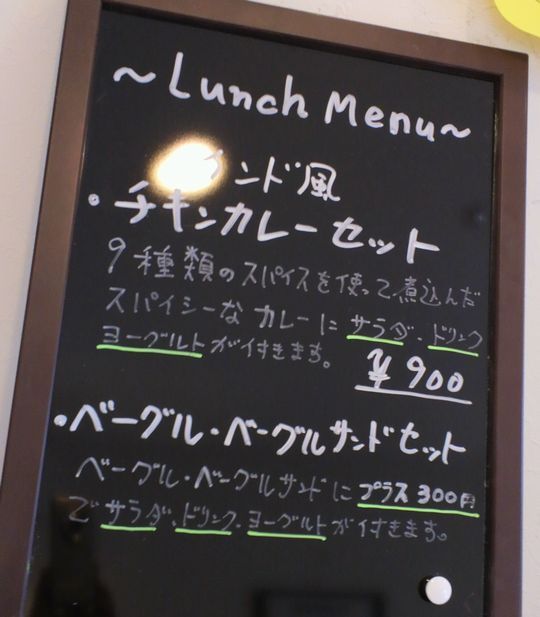 ~Lunch Menu~
インド風
・チキンカレーセット
9種類のスパイスを使って煮込んだ
スパイシーなカレーにサラダ、ドリンク
ヨーグルトが付きます。
¥900
・ベーグル・ベーグルサンドセット
ベーグル・ベーグルサンドにプラス300円
でサラダ、ドリンク、ヨーグルトが付きます。